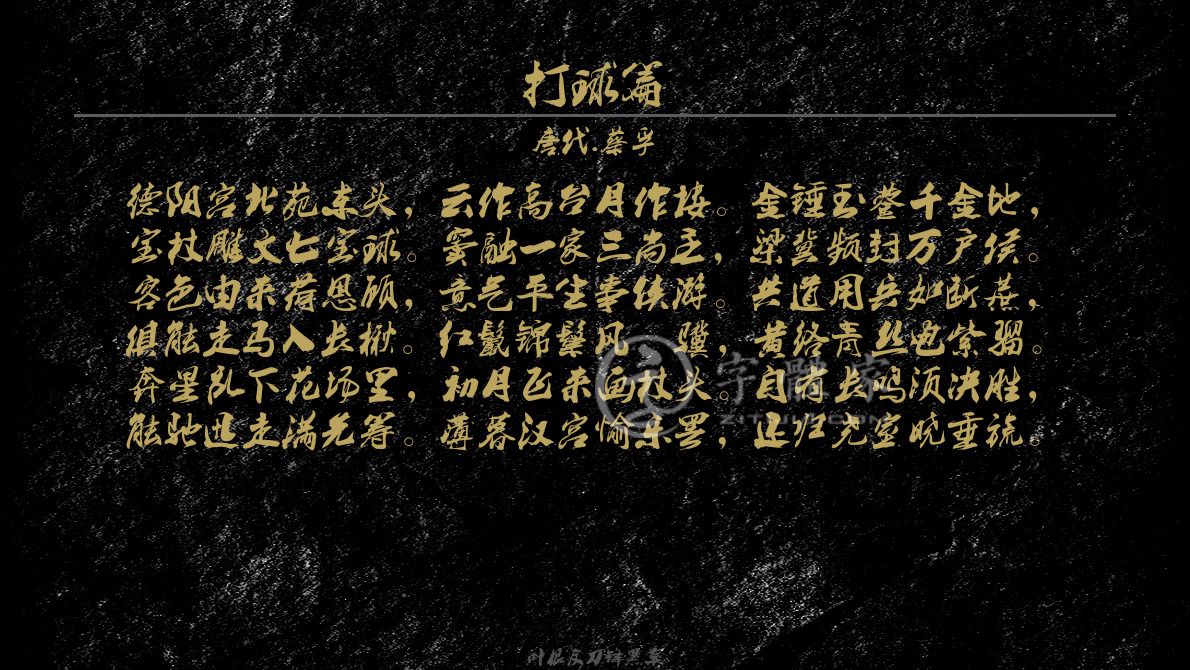 打球篇
唐代.蔡孚
德阳宫北苑东头，云作高台月作楼。金锤玉蓥千金地，
宝杖雕文七宝球。窦融一家三尚主，梁冀频封万户侯。
容色由来荷恩顾，意气平生事侠游。共道用兵如断蔗，
俱能走马入长楸。红鬣锦鬃风 骥，黄络青丝电紫骝。
奔星乱下花场里，初月飞来画杖头。自有长鸣须决胜，
能驰迅走满先筹。薄暮汉宫愉乐罢，还归尧室晓垂旒。
字體家
ZITIJIA.COM